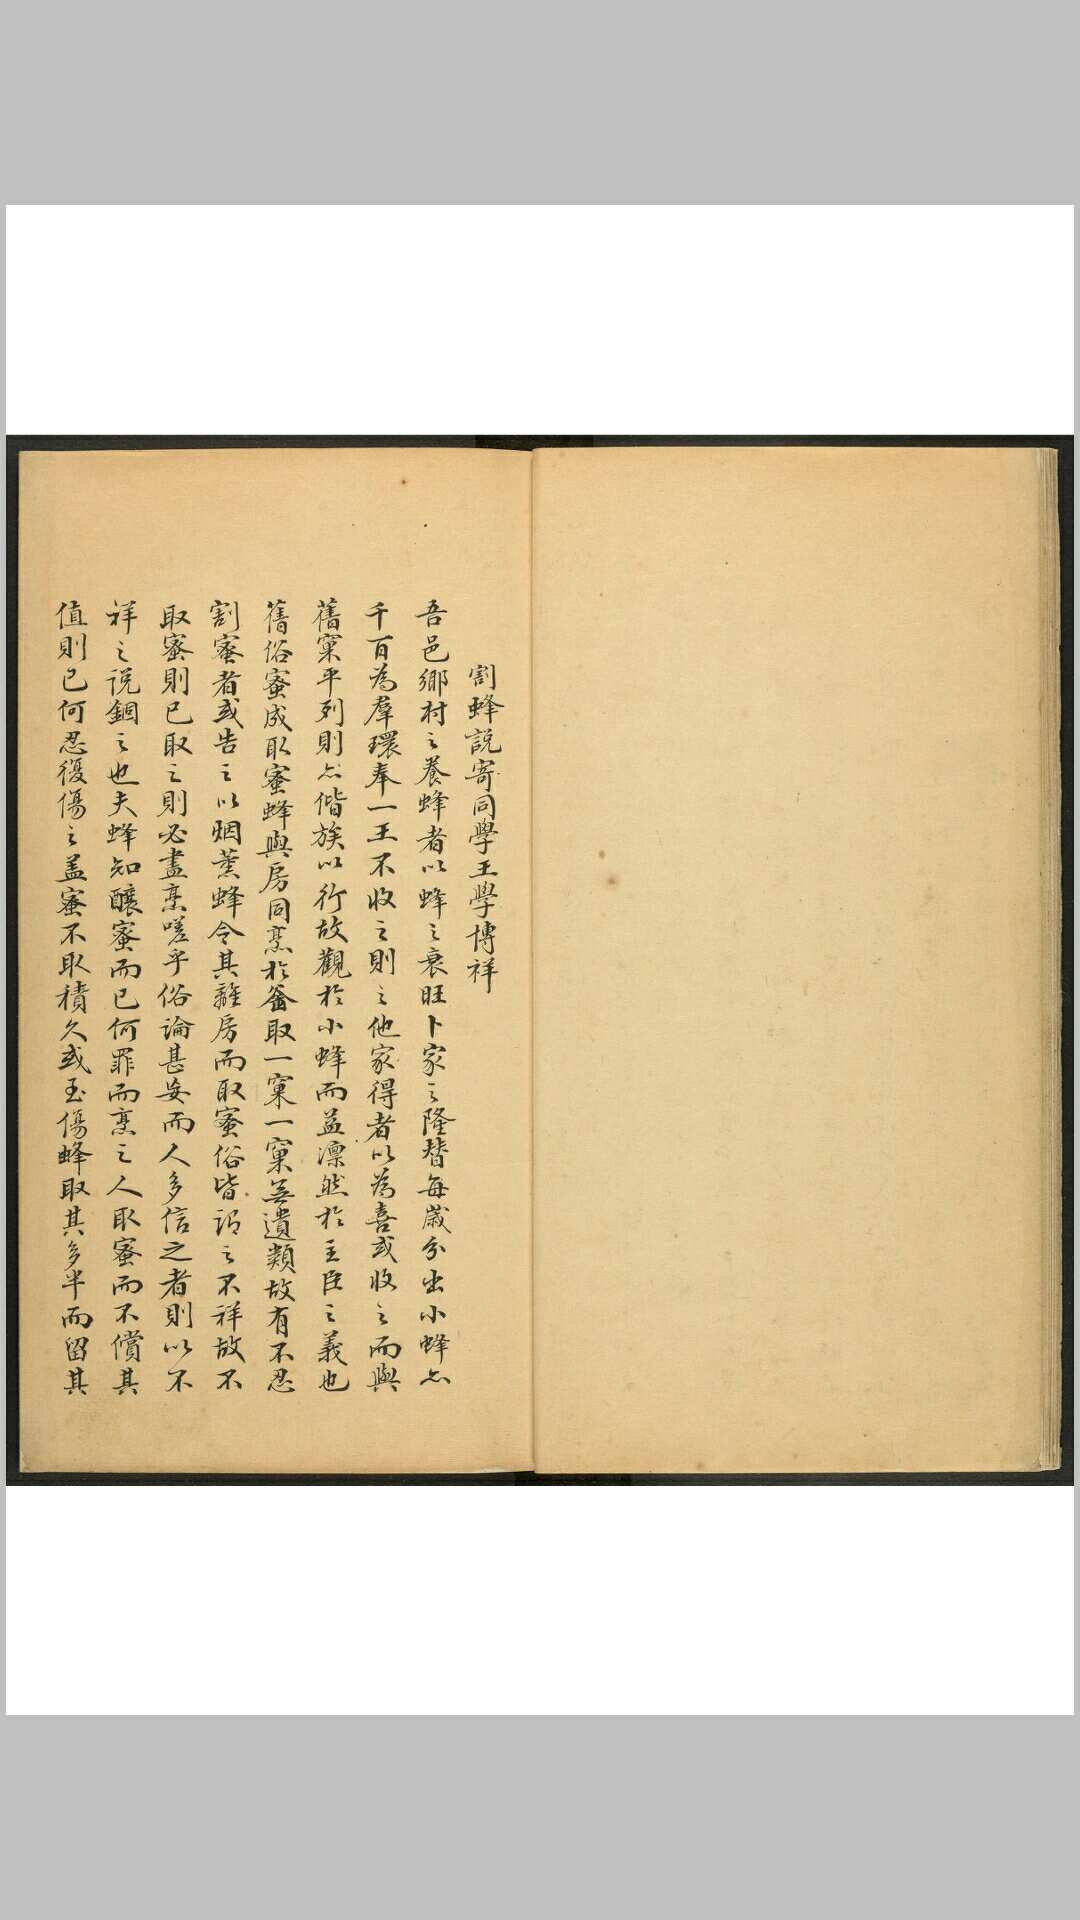 割蜂説寄同學王學博祥
吾邑鄉村之養蜂者以蜂之衰旺卜家之隆替每歲分出小蜂亦
千百為羣環奉一王不收之則之他家得者以為喜或收之而與
舊窠平列則亦偕族以行故觀於小蜂而益凛然於主臣之義也
舊俗蜜成取蜜蜂與房同烹於釜取一窠一窠無遺類故有不忍
割蜜者或告之以烟薰蜂令其離房而取蜜俗皆謂之不祥故不
取蜜則已取之則必盡烹嗟乎俗論甚妄而人多信之者則以不
祥之説錮之也夫蜂知釀蜜而已何罪而烹之人取蜜而不償其
值則已何忍復傷之盖蜜不取積久或至傷蜂取其多半而留其